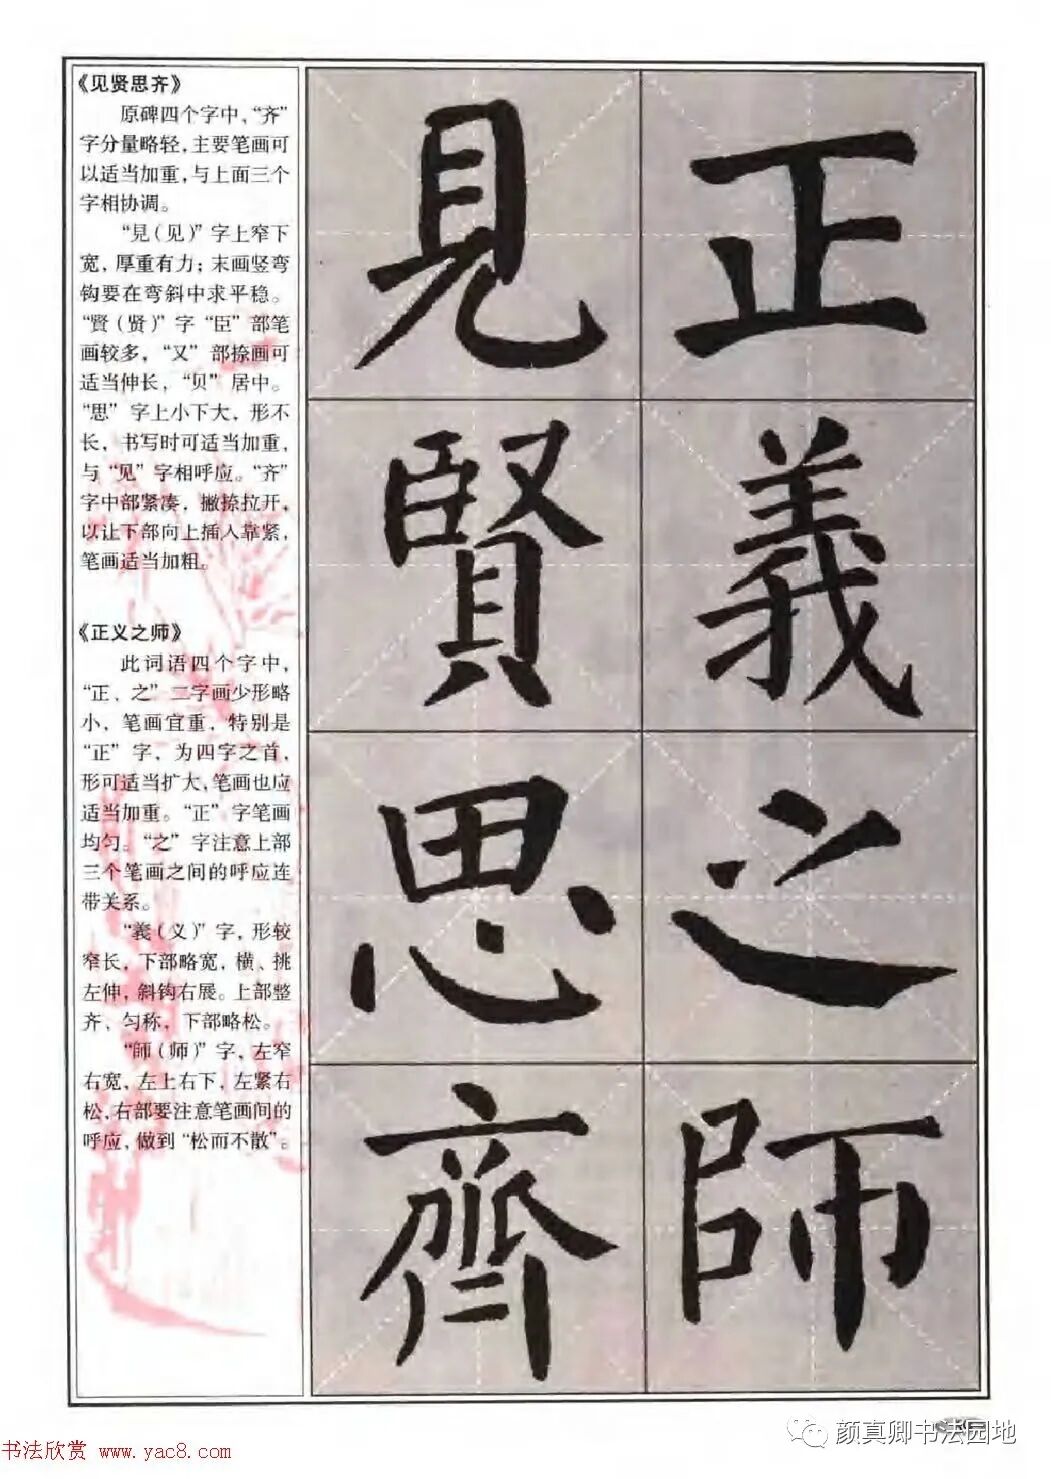 《见贤思齐》
原碑四个字中，“齐”
字分量略轻，主要笔画可
以适当加重，与上面三个
字相协调。
“見（见）”字上窄下
宽，厚重有力；末画竖弯
钩要在弯斜中求平稳。
“賢（贤）”字“臣”部笔
画较多，“又”部捺画可
适当伸长，“贝”居中。
“思”字上小下大，形不
长，书写时可适当加重，
与“见”字相呼应。“齐”
字中部紧凑，撇捺拉开，
以让下部向上插入靠紧，
笔画适当加粗。
《正义之师》
此词语四个字中，
“正、之”二字画少形略
小，笔画宜重，特别是
“正”字，为四字之首，
形可适当扩大，笔画也应
适当加重。“正”字笔画
均匀。“之”字注意上部
三个笔画之间的呼应连
带关系。
“義（义）”字，形较
窄长，下部略宽，横、挑
左伸，斜钩右展。上部整
齐、匀称，下部略松。
“師（师）”字，左窄
右宽，左上右下，左紧右
松，右部要注意笔画间的
呼应，做到“松而不散”。
正義之師
見賢思齊
颜真卿书法园地
书法欣赏 www.yac8.com